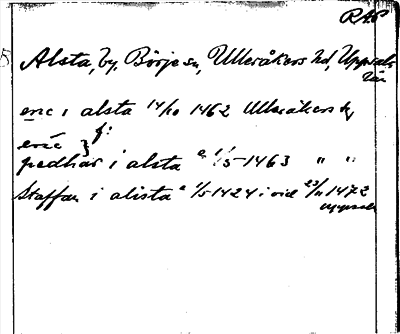 RAP
Alsta, by, Börje sn, Ulleråkers hd, Uppsala
län
eric i alsta 14/10 1462 Ulleråkers
eric } f:
pedhar i alsta a 1/5 1463 " "
Staffan i alista a 1/5 1424 i vid 23/11 1472
Uppsala